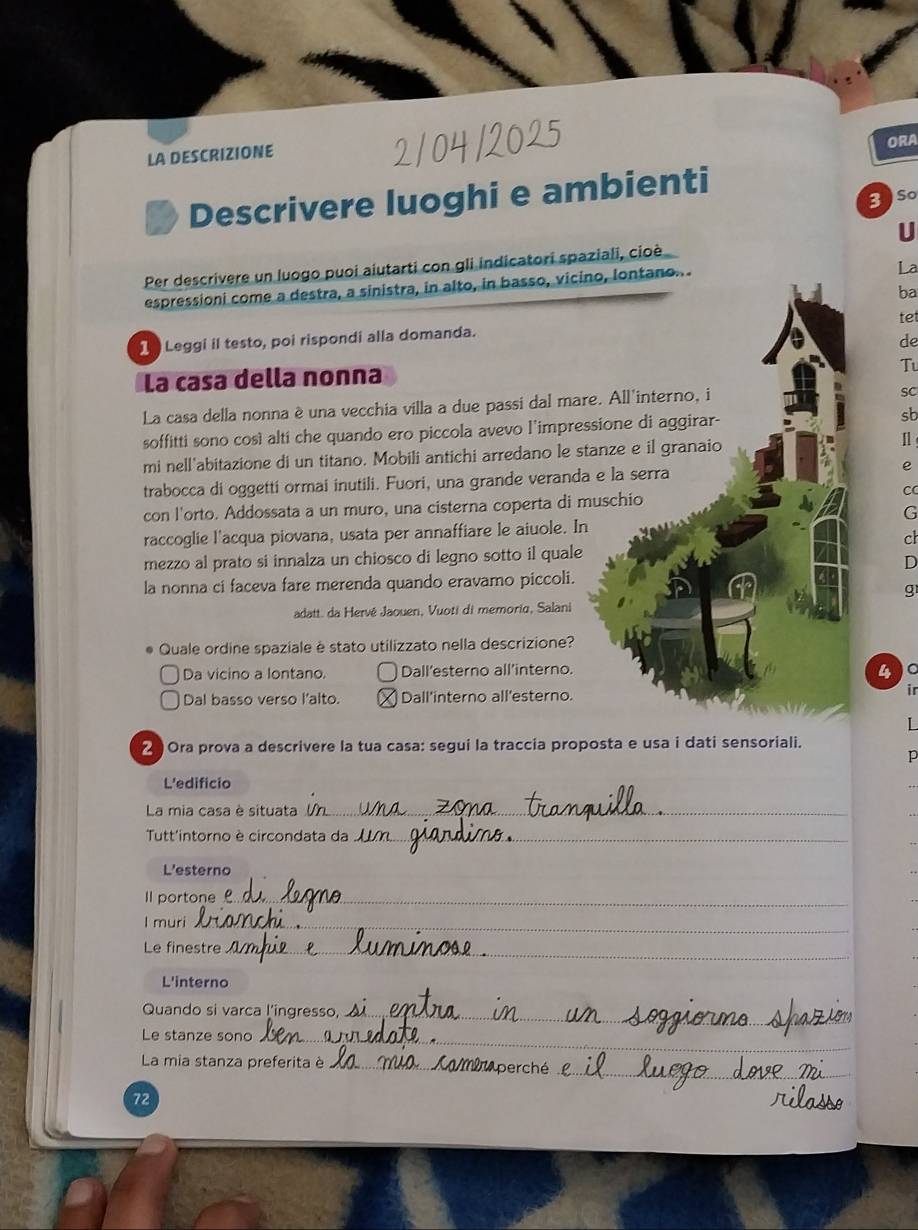 LA DESCRIZIONE
2/04/2025
Descrivere luoghi e ambienti
Per descrivere un luogo puoi aiutarti con gli indicatori spaziali, cioè
espressioni come a destra, a sinistra, in alto, in basso, vicino, lontano...
1 Leggi il testo, poi rispondi alla domanda.
La casa della nonna
La casa della nonna è una vecchia villa a due passi dal mare. All'interno, i
soffitti sono così alti che quando ero piccola avevo l'impressione di aggirar-
mi nell'abitazione di un titano. Mobili antichi arredano le stanze e il granaio
trabocca di oggetti ormai inutili. Fuori, una grande veranda e la serra
con l'orto. Addossata a un muro, una cisterna coperta di muschio
raccoglie l'acqua piovana, usata per annaffiare le aiuole. In
mezzo al prato si innalza un chiosco di legno sotto il quale
la nonna ci faceva fare merenda quando eravamo piccoli.
adatt. da Hervé Jaouen, Vuoti di memoria, Salani
• Quale ordine spaziale è stato utilizzato nella descrizione?
Da vicino a lontano. Dall'esterno all'interno.
Dal basso verso l'alto. X Dall'interno all'esterno.
2 Ora prova a descrivere la tua casa: segui la traccia proposta e usa i dati sensoriali.
L'edificio
La mia casa è situata in una zona tranquilla.
Tutt'intorno è circondata da un giardino.
L'esterno
Il portone e di legno
I muri bianchi.
Le finestre ampie e luminose.
L'interno
Quando si varca l'ingresso, si entra in un soggiorno
Le stanze sono ben arredate.
La mia stanza preferita è la mia camera perché e il luogo dove mi
rilasso
72
ORA
3 So
U
La
ba
tet
de
Tu
sc
sb
Il
e
co
G
ch
D
gr
4 O
in
L
p